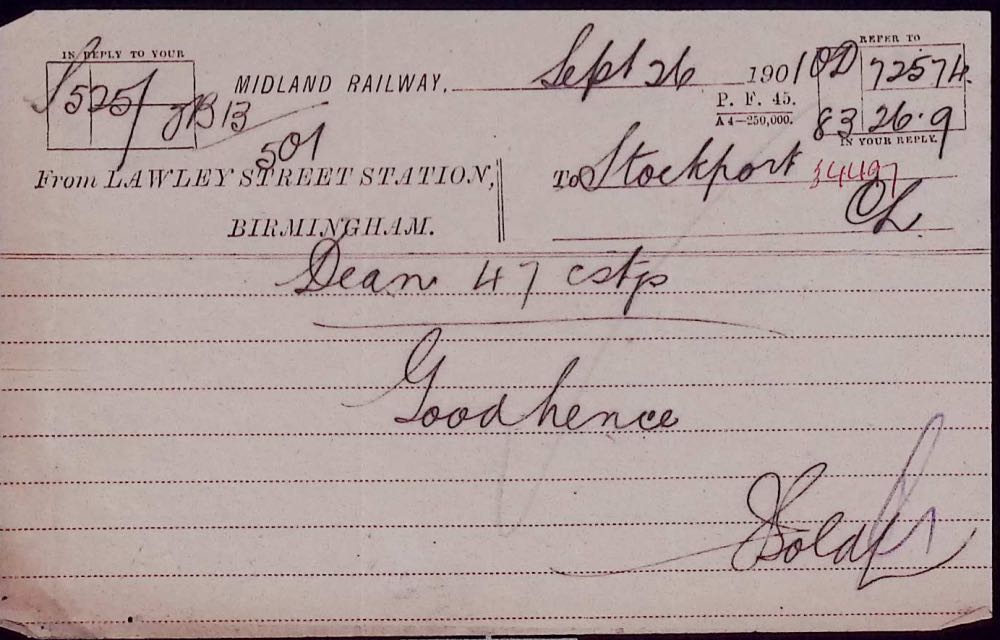 IN REPLY TO YOUR
S 525/ JB 13
501
MIDLAND RAILWAY, Sept 26 1901
P. F. 45.
A 4—250,000.
REFER TO
OD 72574.
83 26.9
IN YOUR REPLY.
From LAWLEY STREET STATION,
BIRMINGHAM.
To Stockport
34497
Dean 47 cstgs
Good hence